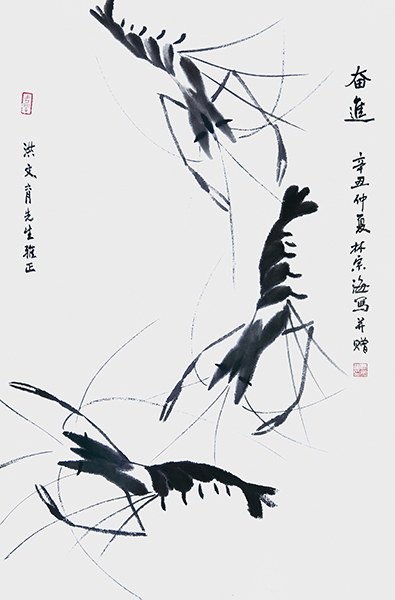 奋進
辛丑仲夏林宗海写并赠
洪文育先生雅正